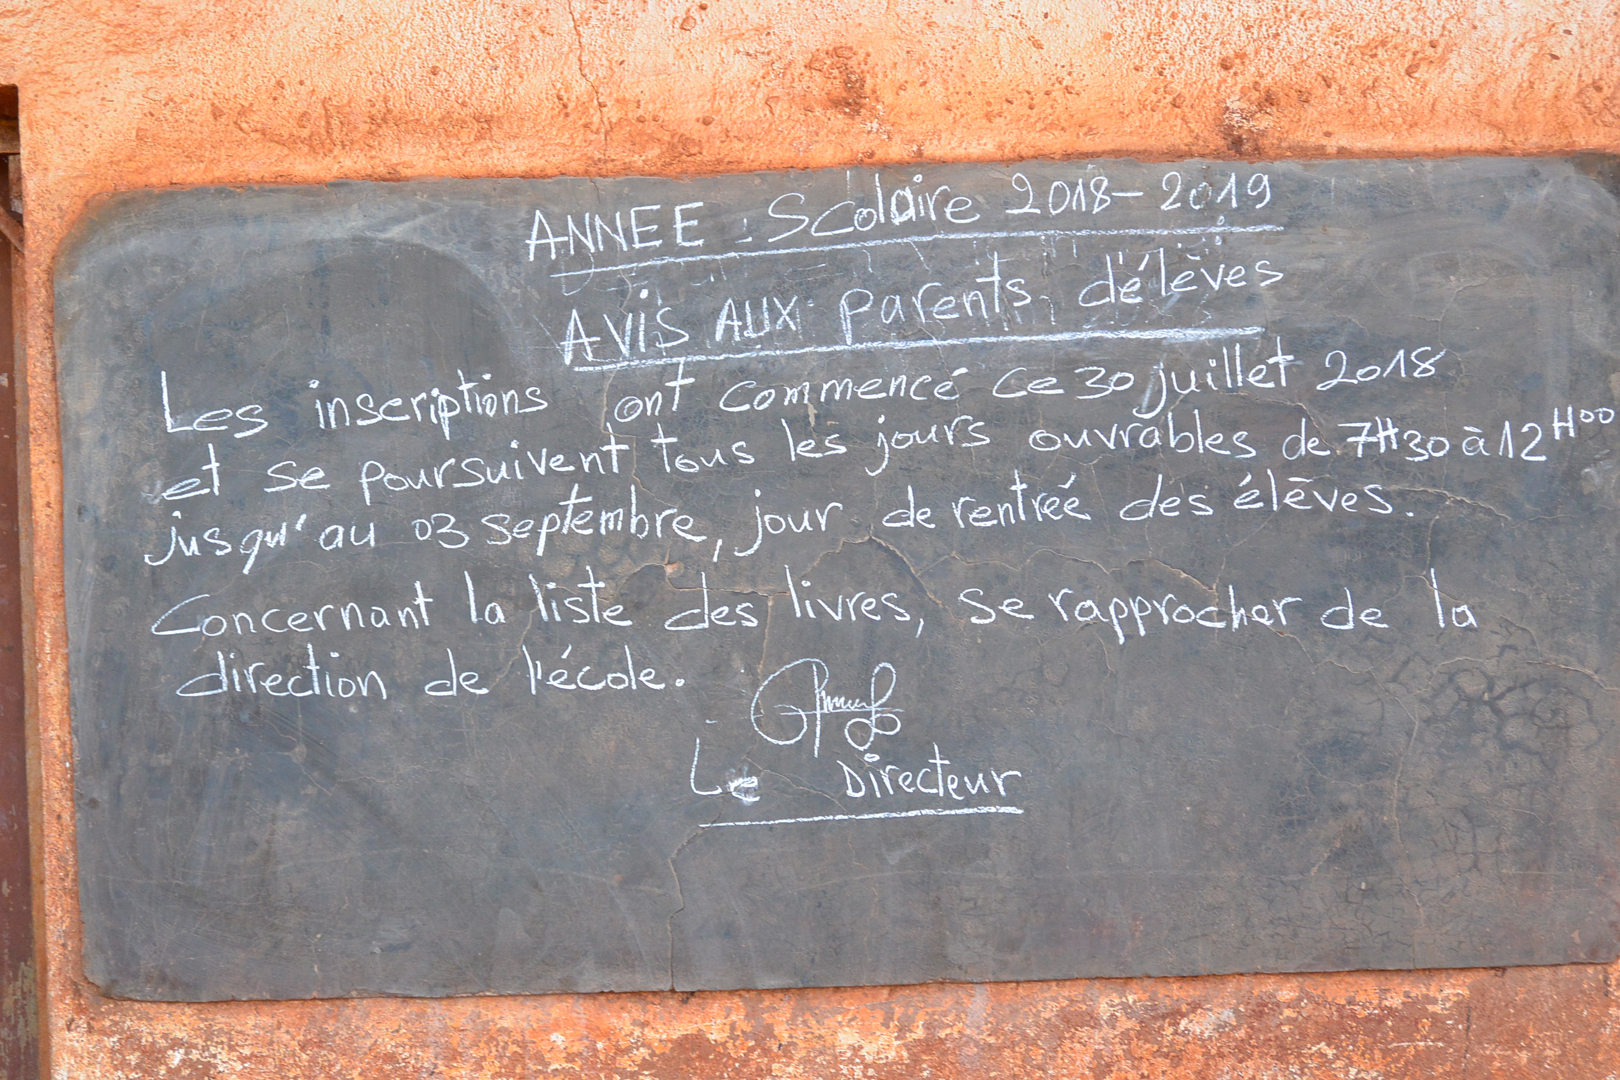 ANNEE : Scolaire 2018-2019
AVIS AUX parents d'élèves
Les inscriptions ont commencé ce 30 juillet 2018
et se poursuivent tous les jours ouvrables de 7H30 à 12H00
jusqu'au 03 septembre, jour de rentrée des élèves.
Concernant la liste des livres, se rapprocher de la
direction de l'école.
Le Directeur